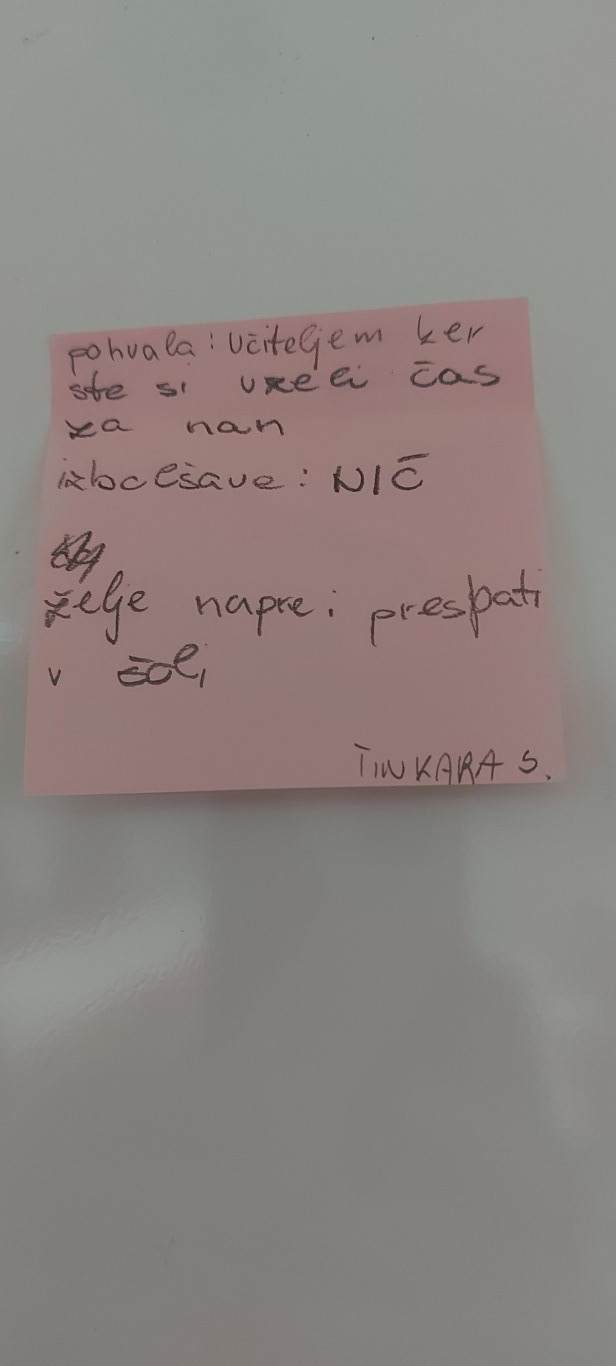 pohvala: učiteljem ker
ste si vzeli čas
za nan
izbolšave: NIČ
želje napre: prespati
v šoli
TINKARA S.